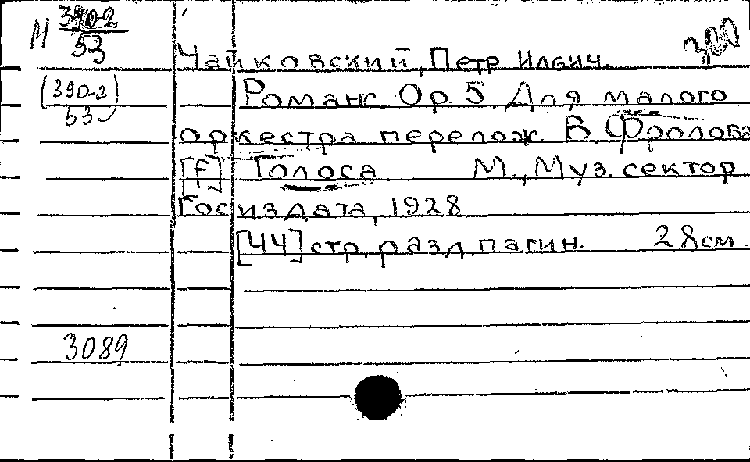 М 390-2
53
Чайковский, Петр Ильич.
(390-2)
53
Романс. Ор. 5. Для малого
оркестра перелож. В. Фролова
[f] Голоса. М., Муз. сектор
Госиздата, 1928
[44] стр. разд. пагин. 28 см
3089